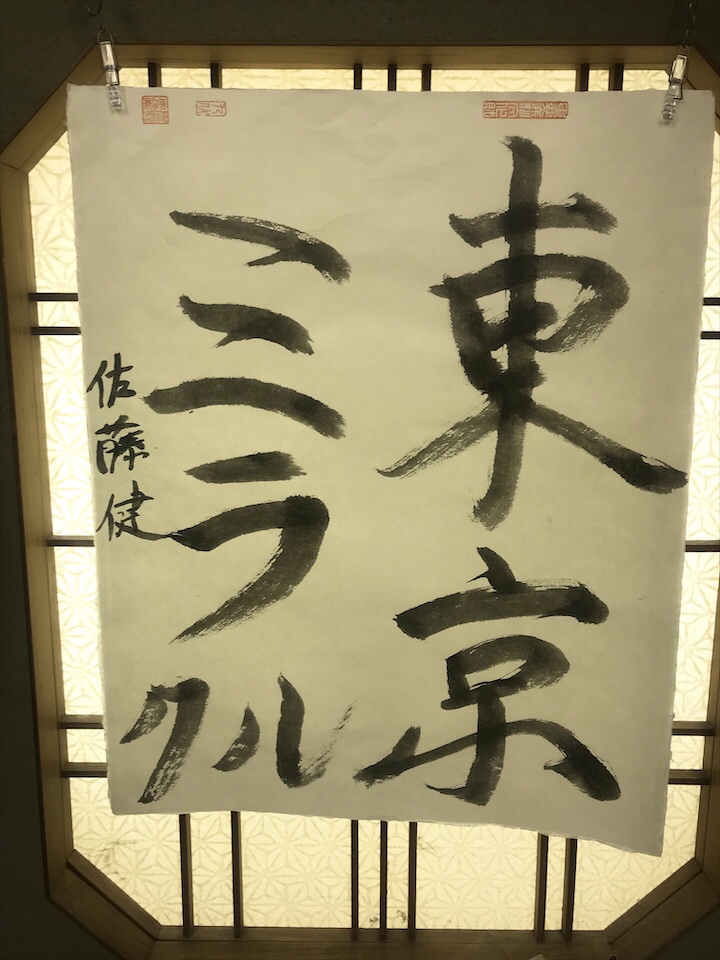 東京
ミラクル
佐藤健